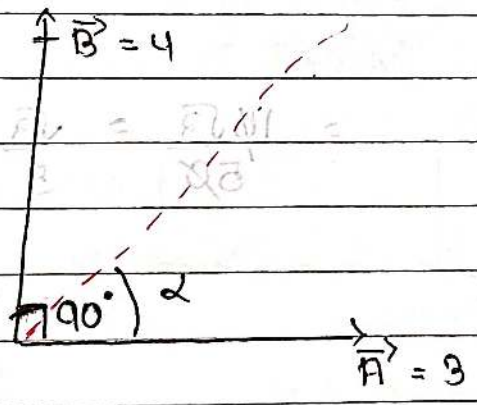 B⃗ = 4
90° α
A⃗ = 3